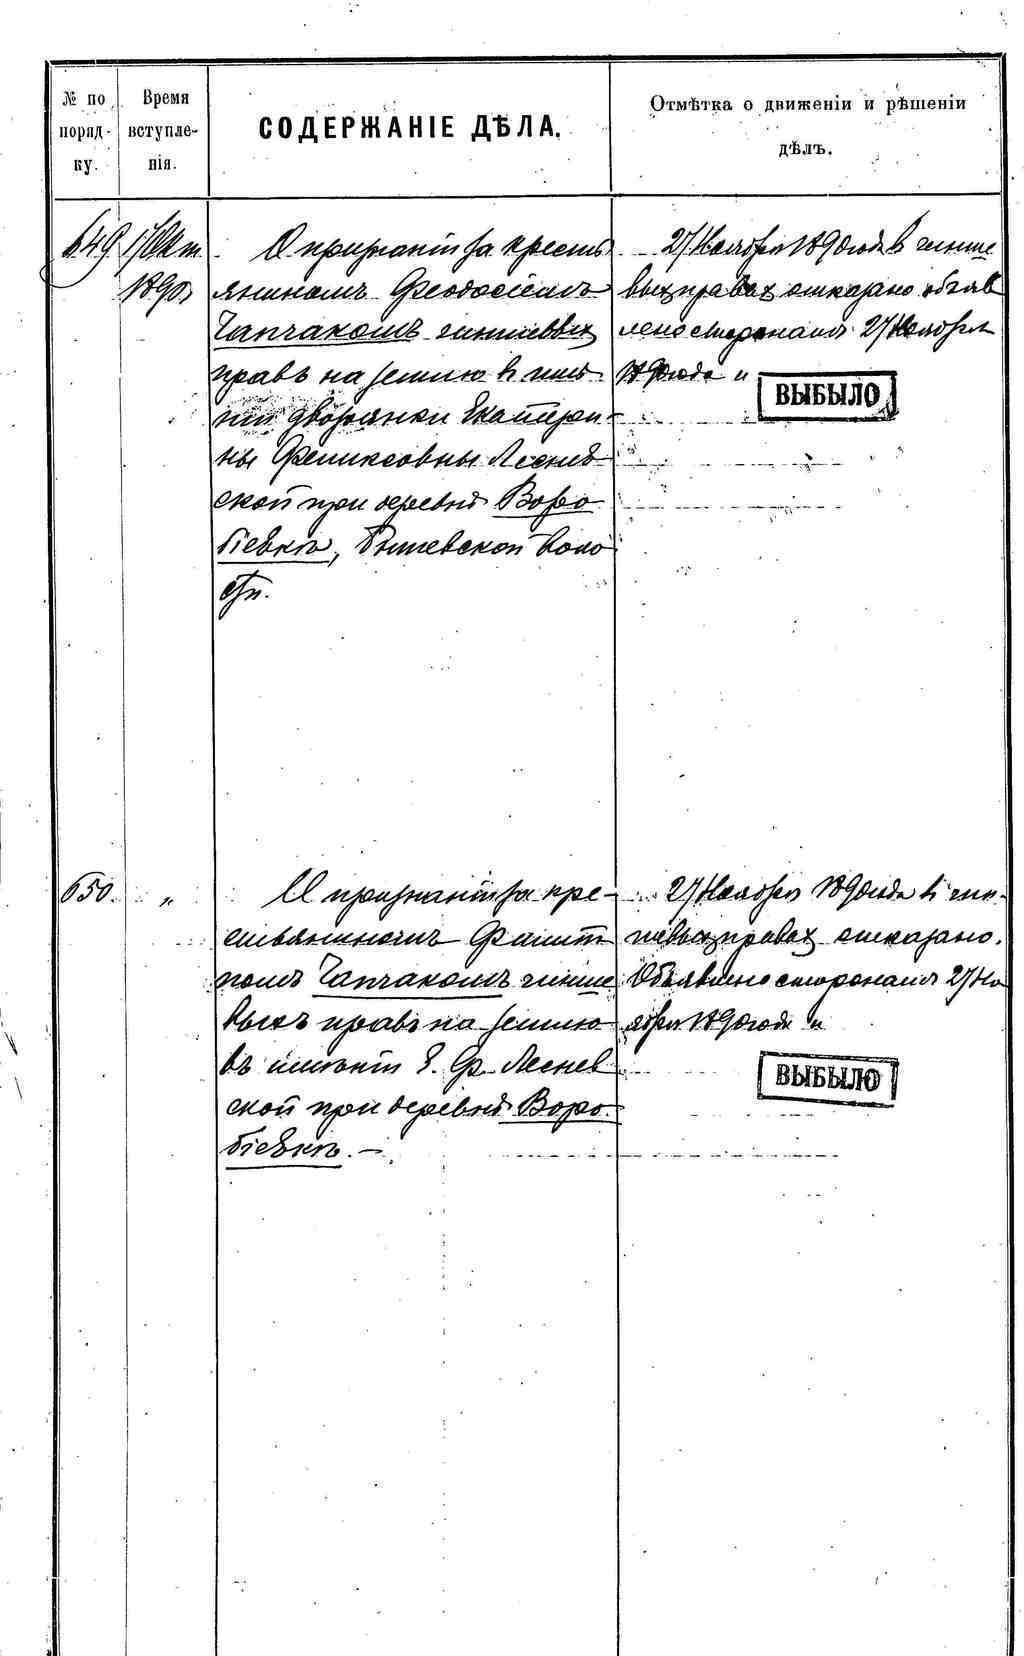 № по порядку.
Время вступленія.
СОДЕРЖАНІЕ ДѢЛА.
Отмѣтка о движеніи и рѣшеніи дѣлъ.
649
1 Окт.
1890
О признаніи за кресть
яниномъ Феодосіемъ
Чапчакомъ чиншевыхъ
правъ на землю въ имѣ
ніи дворянки Екатери-
ны Феликсовны Лѣснев
ской при деревнѣ Воро
біевкѣ, волo
сти.
27 Ноября 1890 года въ чинше
выхъ правах отказано объяв
лено сторонамъ 27 Ноября
1890 года
ВЫБЫЛО
650.
"
О признаніи за кре-
стьяниномъ Филип
помъ Чапчакомъ чинше
выхъ правъ на землю
въ имѣніи Е. Ф. Леснев
ской при деревнѣ Воро
біевкѣ. —
27 Ноября 1890 года въ чин-
шевыхъ правах отказано.
Объявлено сторонамъ 27 Но
ября 1890 года
ВЫБЫЛО